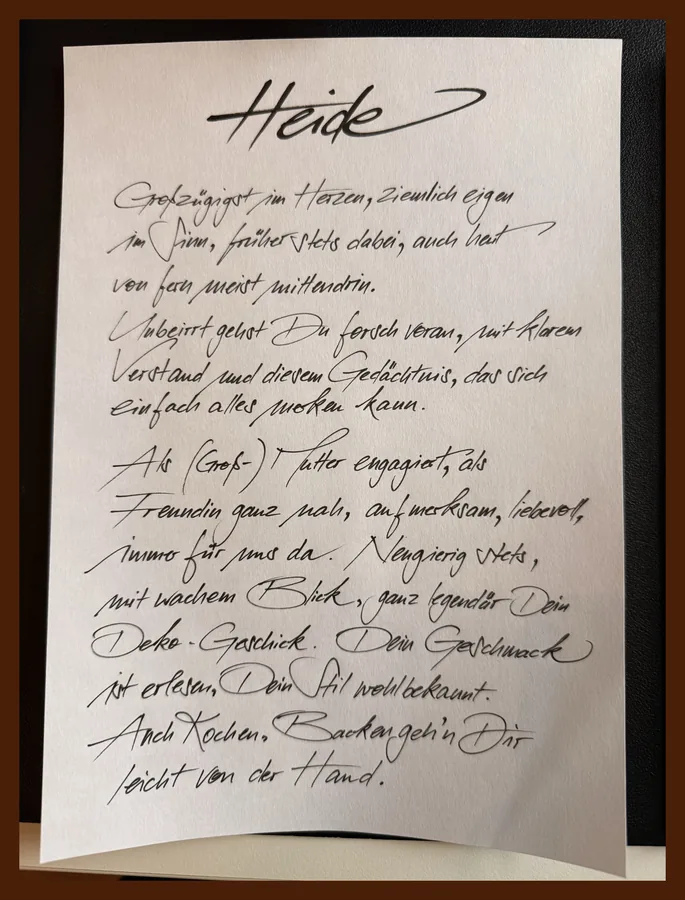 Heide
Großzügigst im Herzen, ziemlich eigen
im Sinn, früher stets dabei, auch heut
von fern meist mittendrin.
Unbeirrt gehst Du forsch voran, mit klarem
Verstand und diesem Gedächtnis, das sich
einfach alles merken kann.
Als (Groß-) Mutter engagiert, als
Freundin ganz nah, aufmerksam, liebevoll,
immer für uns da. Neugierig stets,
mit wachem Blick, ganz legendär Dein
Deko-Geschick. Dein Geschmack
ist erlesen, Dein Stil wohlbekannt.
Auch Kochen, Backen geh'n Dir
leicht von der Hand.